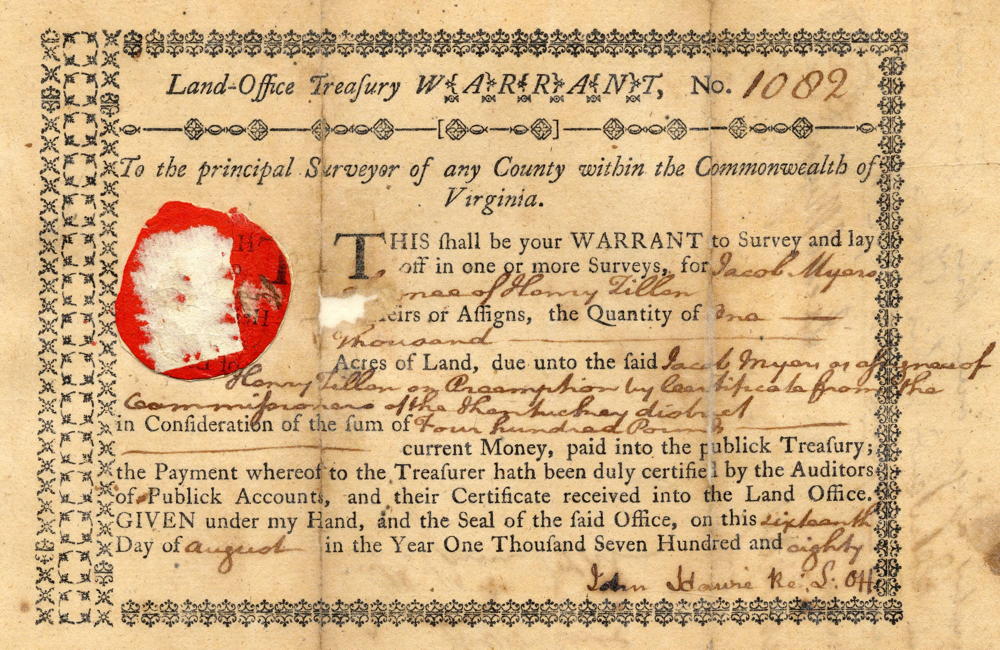 Land-Office Treaſury WARRANT, No. 1082
To the principal Surveyor of any County within the Commonwealth of
Virginia.
THIS ſhall be your WARRANT to Survey and lay
off in one or more Surveys, for Jacob Myers
of Henry Tillen
heirs or Aſſigns, the Quantity of One
Thousand
Acres of Land, due unto the ſaid Jacob Myers as aſsignee of
Henry Tillen on Preemption by Certificate from the
Commiſsioners of the Khentuckney district
in Conſideration of the ſum of Four hundred Pounds
current Money, paid into the publick Treaſury;
the Payment whereof to the Treaſurer hath been duly certified by the Auditors
of Publick Accounts, and their Certificate received into the Land Office.
GIVEN under my Hand, and the Seal of the ſaid Office, on this sixteenth
Day of august in the Year One Thouſand Seven Hundred and eighty
John Hawie Re. L. Off